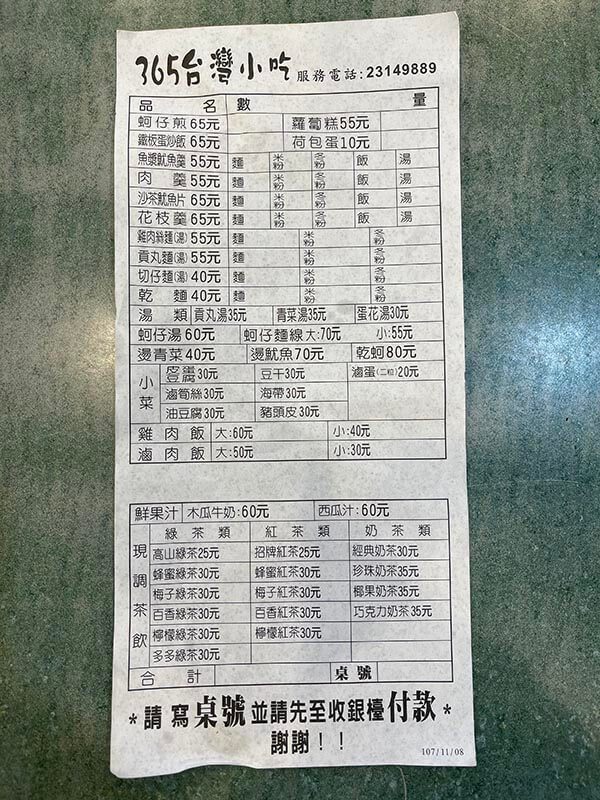 365台灣小吃 服務電話:23149889
品名 數量
蚵仔煎65元 蘿蔔糕55元
鐵板蛋炒飯65元 荷包蛋10元
魚漿魷魚羹55元 麵 米粉 冬粉 飯 湯
肉羹55元 麵 米粉 冬粉 飯 湯
沙茶魷魚片65元 麵 米粉 冬粉 飯 湯
花枝羹65元 麵 米粉 冬粉 飯 湯
雞肉絲麵(湯)55元 麵 米粉 冬粉
貢丸麵(湯)55元 麵 米粉 冬粉
切仔麵(湯)40元 麵 米粉 冬粉
乾麵40元 麵 米粉 冬粉
湯類 貢丸湯35元 青菜湯35元 蛋花湯30元
蚵仔湯60元 蚵仔麵線 大:70元 小:55元
燙青菜40元 燙魷魚70元 乾蚵80元
小菜 皮蛋豆腐30元 豆干30元 滷蛋(二粒)20元
滷筍絲30元 海帶30元
油豆腐30元 豬頭皮30元
雞肉飯 大:60元 小:40元
滷肉飯 大:50元 小:30元
鮮果汁 木瓜牛奶:60元 西瓜汁:60元
現調茶飲 綠茶類 紅茶類 奶茶類
高山綠茶25元 招牌紅茶25元 經典奶茶30元
蜂蜜綠茶30元 蜂蜜紅茶30元 珍珠奶茶35元
梅子綠茶30元 梅子紅茶30元 椰果奶茶35元
百香綠茶30元 百香紅茶30元 巧克力奶茶35元
檸檬綠茶30元 檸檬紅茶30元
多多綠茶30元
合計 桌號
*請寫桌號並請先至收銀檯付款*
謝謝!!
107/11/08